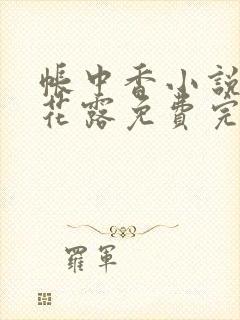 帳中香小說
花露免費完
羅軍